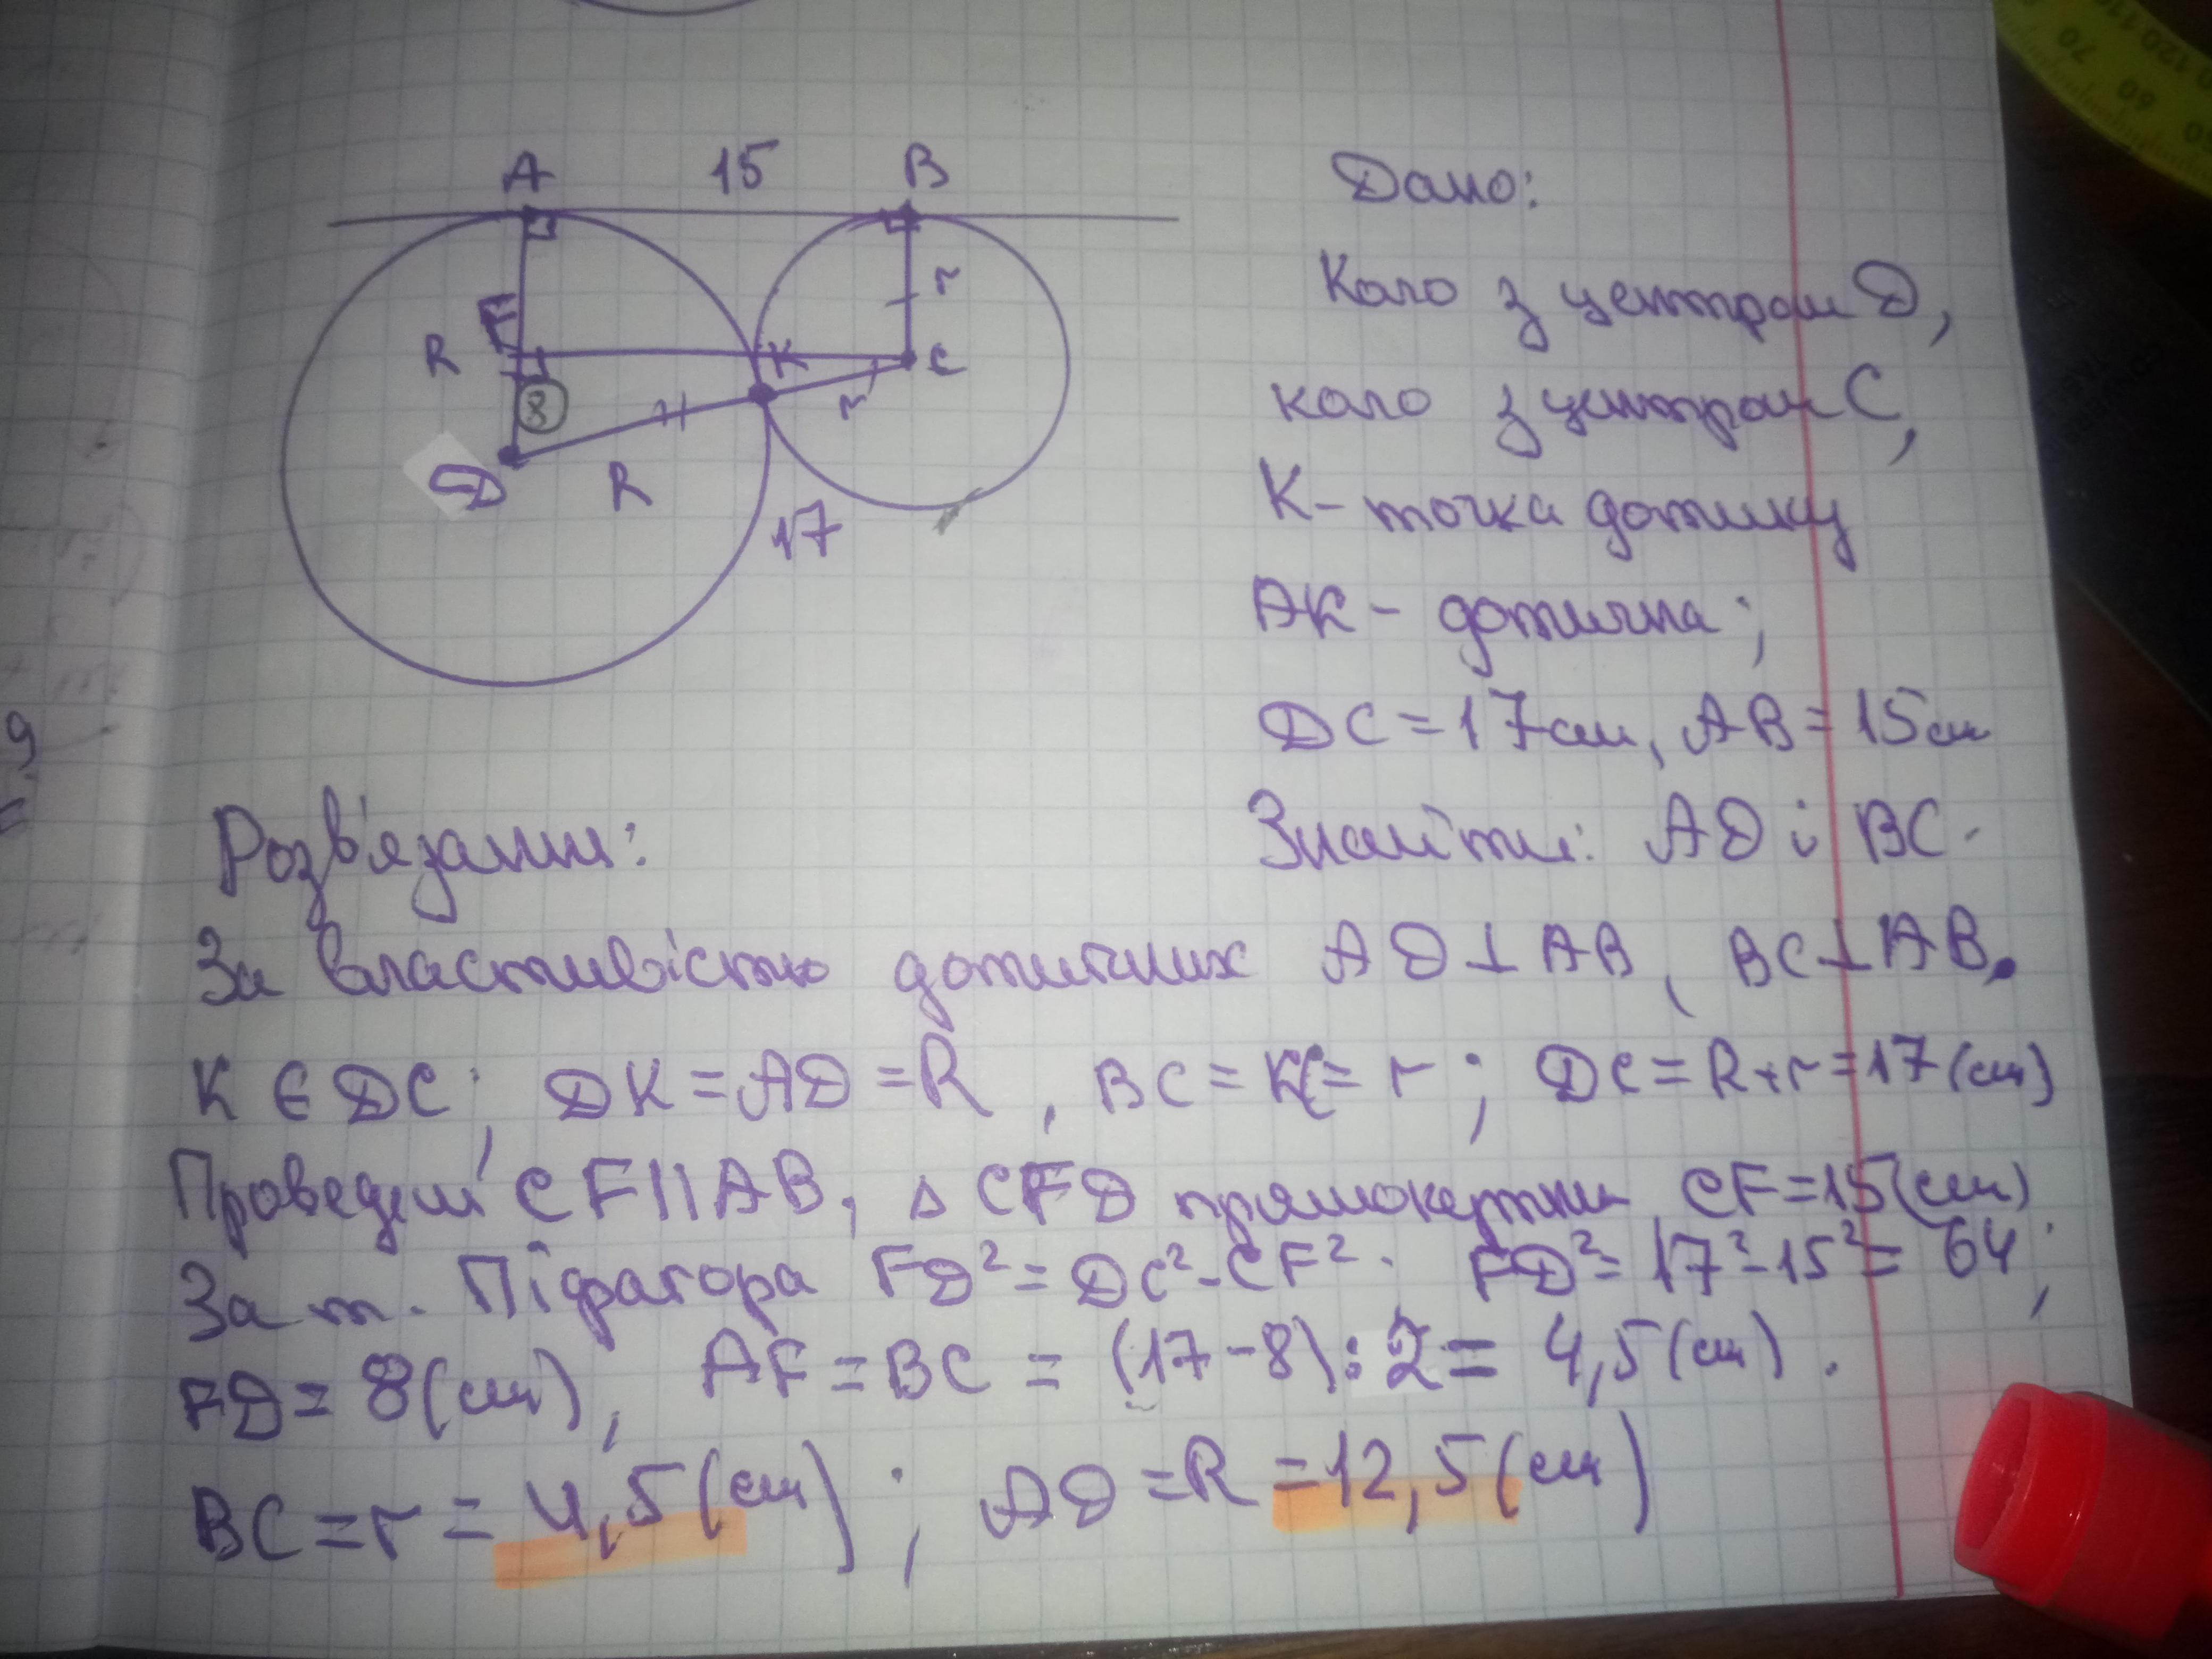 A 15 B
Дано:
F
R
K
r
C
8
r
D
R
17
Коло з центром D,
коло з центром C,
K - точка дотику
AK - дотична;
DC = 17см, AB = 15см
Знайти: AD і BC.
Розв'язання:
За властивістю дотичних AD ⊥ AB, BC ⊥ AB.
K ∈ DC; DK = AD = R, BC = KC = r; DC = R + r = 17 (см)
Проведемо CF || AB, Δ CFD прямокутний CF = 15 (см)
За т. Піфагора FD² = DC² - CF². FD² = 17² - 15² = 64;
FD = 8 (см), AF = BC = (17 - 8) : 2 = 4,5 (см).
BC = r = 4,5 (см); AD = R = 12,5 (см)
70
60
120